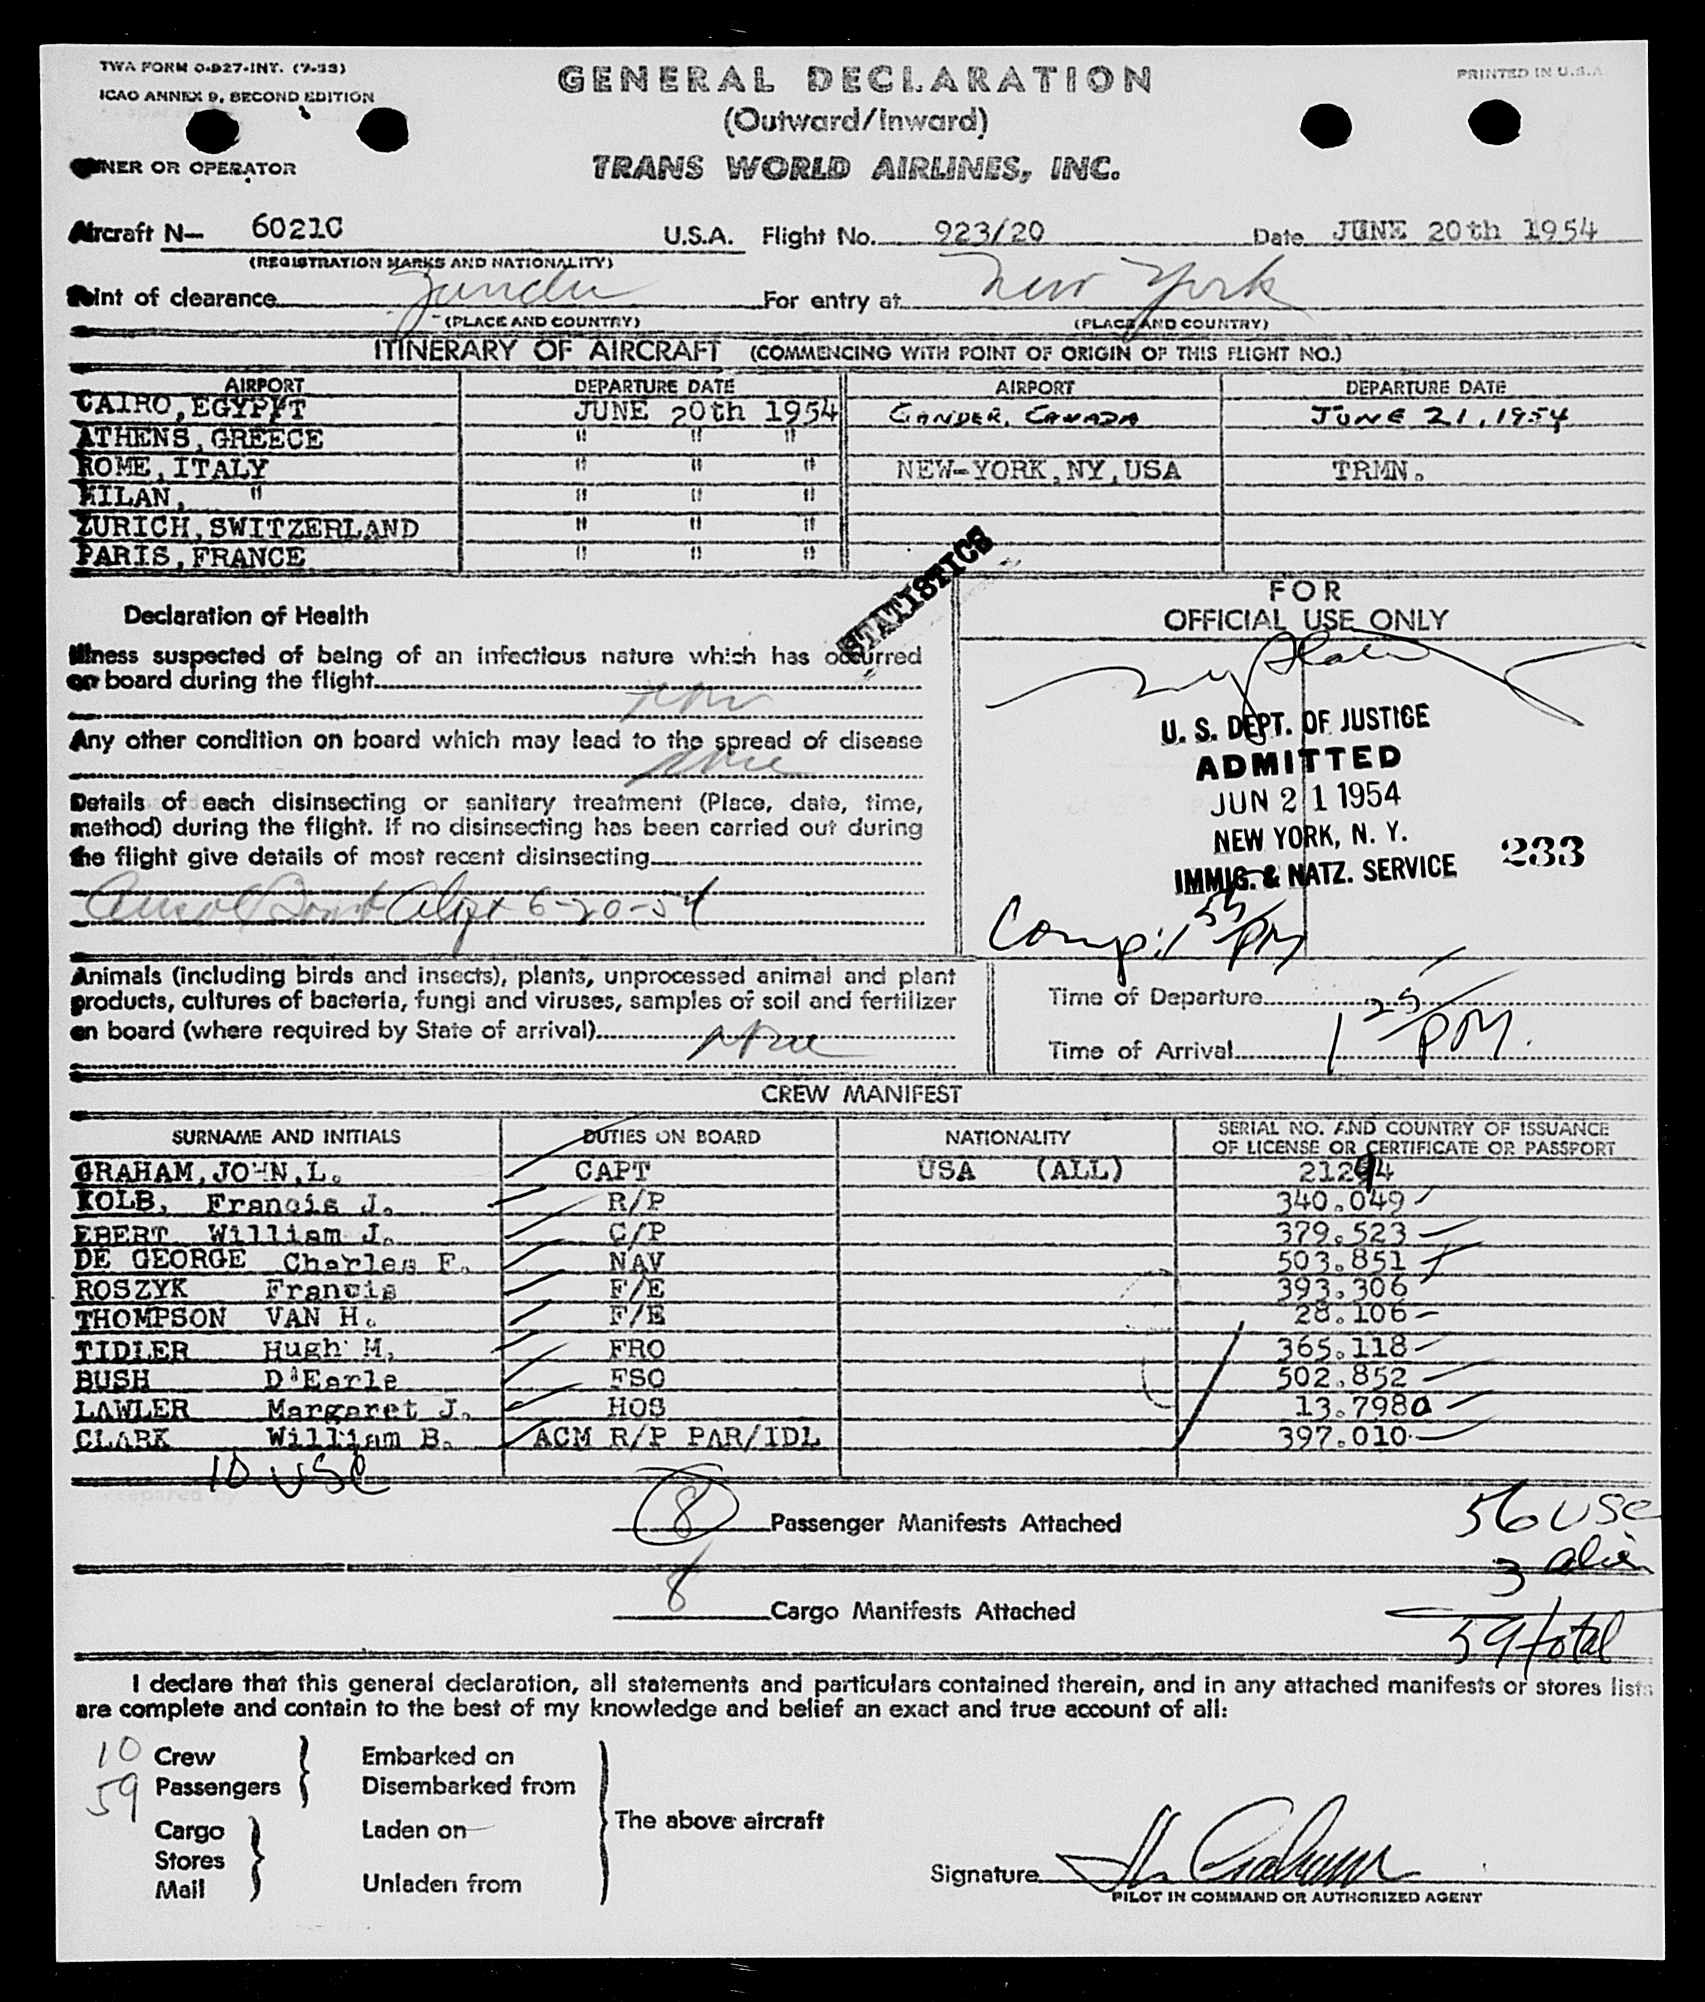 TWA FORM O-927-INT. (7-53)
ICAO ANNEX 9, SECOND EDITION
PRINTED IN U.S.A.
GENERAL DECLARATION
(Outward/Inward)
OWNER OR OPERATOR
TRANS WORLD AIRLINES, INC.
Aircraft N— 6021C U.S.A. Flight No. 923/20 Date JUNE 20th 1954
(REGISTRATION MARKS AND NATIONALITY)
Point of clearance Gander For entry at New York
(PLACE AND COUNTRY) (PLACE AND COUNTRY)
ITINERARY OF AIRCRAFT (COMMENCING WITH POINT OF ORIGIN OF THIS FLIGHT NO.)
AIRPORT DEPARTURE DATE AIRPORT DEPARTURE DATE
CAIRO, EGYPT JUNE 20th 1954 GANDER, CANADA JUNE 21, 1954
ATHENS, GREECE " " "
ROME, ITALY " " " NEW-YORK, NY, USA TRMN.
MILAN, " " " "
ZURICH, SWITZERLAND " " "
PARIS, FRANCE " " "
STATISTICS
FOR
OFFICIAL USE ONLY
Declaration of Health
Illness suspected of being of an infectious nature which has occurred
on board during the flight
Any other condition on board which may lead to the spread of disease
none
Details of each disinsecting or sanitary treatment (Place, date, time,
method) during the flight. If no disinsecting has been carried out during
the flight give details of most recent disinsecting
6-20-54
U. S. DEPT. OF JUSTICE
ADMITTED
JUN 21 1954
NEW YORK, N. Y.
IMMIG. & NATZ. SERVICE
233
Compl 1 55 PM
Animals (including birds and insects), plants, unprocessed animal and plant
products, cultures of bacteria, fungi and viruses, samples of soil and fertilizer
on board (where required by State of arrival) None
Time of Departure
Time of Arrival 1 25 PM.
CREW MANIFEST
SURNAME AND INITIALS DUTIES ON BOARD NATIONALITY SERIAL NO. AND COUNTRY OF ISSUANCE
OF LICENSE OR CERTIFICATE OR PASSPORT
GRAHAM, JOHN, L. CAPT USA (ALL) 21294
KOLB, Francis J. R/P 340.049
EBERT William J. C/P 379.523
DE GEORGE Charles F. NAV 503.851
ROSZYK Francis F/E 393.306
THOMPSON VAN H. F/E 28.106
TIDLER Hugh M. FRO 365.118
BUSH D'Earle FSO 502.852
LAWLER Margaret J. HOS 13.798
CLARK William B. ACM R/P PAR/IDL 397.010
10 USC
8 Passenger Manifests Attached
56 USC
3 alien
8 Cargo Manifests Attached
59 total
I declare that this general declaration, all statements and particulars contained therein, and in any attached manifests or stores lists
are complete and contain to the best of my knowledge and belief an exact and true account of all:
10 Crew Embarked on
59 Passengers Disembarked from
The above aircraft
Cargo Laden on
Stores
Mail Unladen from
Signature J L Graham
PILOT IN COMMAND OR AUTHORIZED AGENT